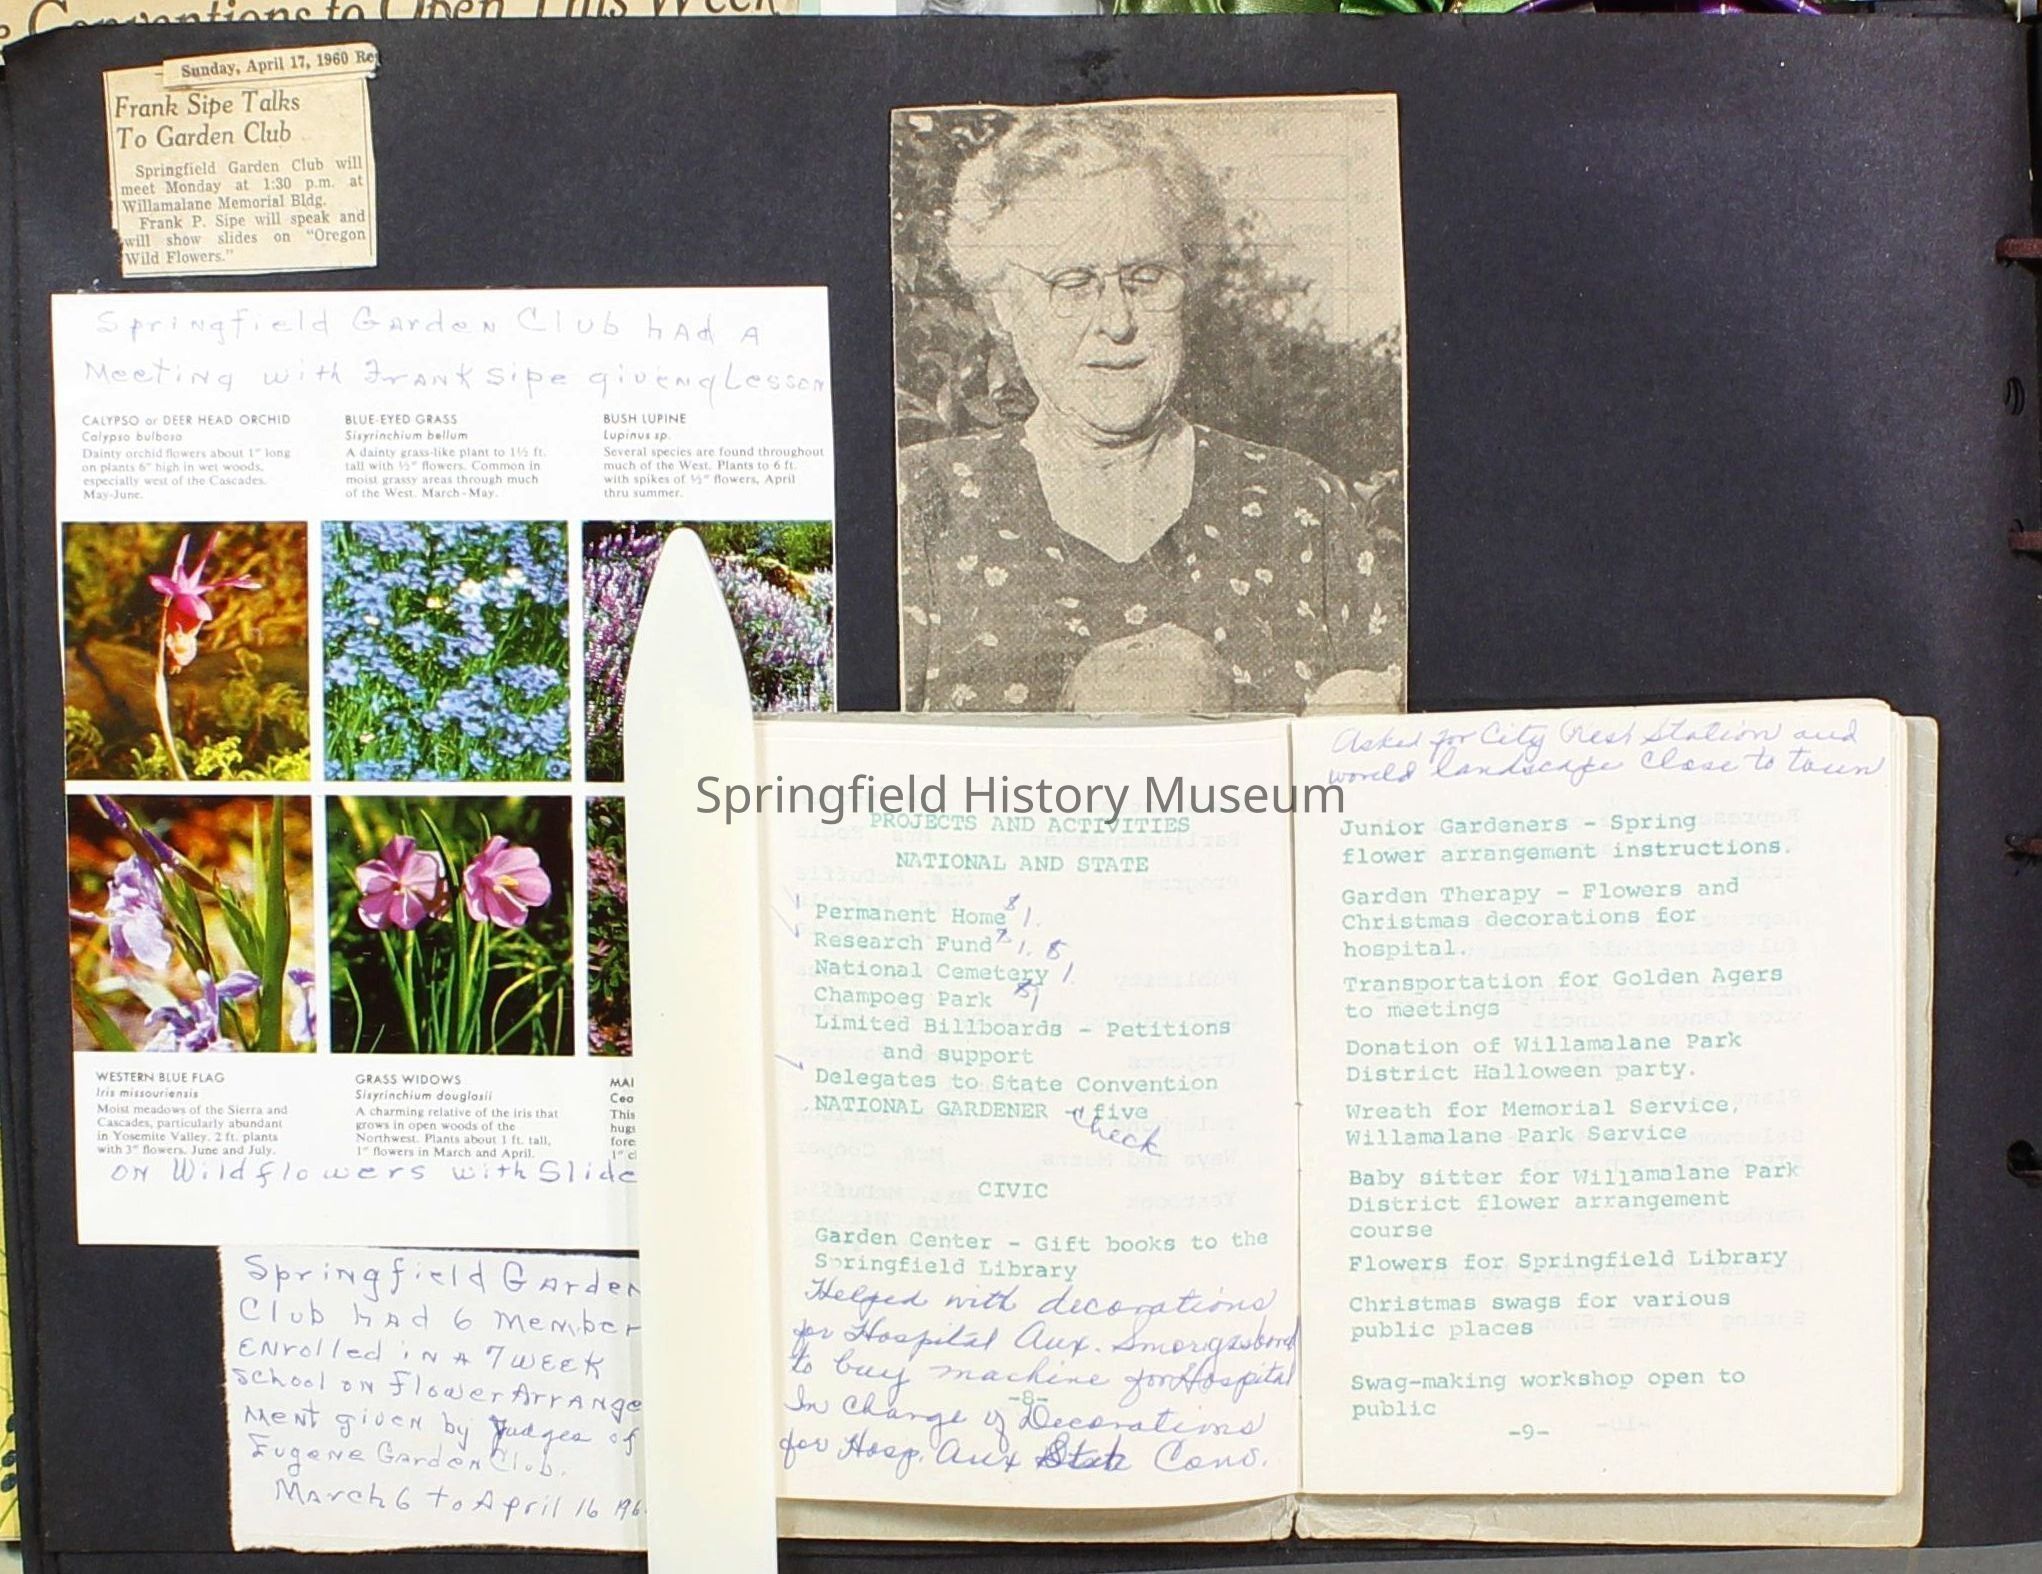 Conventions to Open This Week
Sunday, April 17, 1960 Re
Frank Sipe Talks
To Garden Club
Springfield Garden Club will
meet Monday at 1:30 p.m. at
Willamalane Memorial Bldg.
Frank P. Sipe will speak and
will show slides on "Oregon
Wild Flowers."
Springfield Garden Club had A
Meeting with Frank Sipe giveng Lesson
CALYPSO or DEER HEAD ORCHID
Calypso bulbosa
Dainty orchid flowers about 1" long
on plants 6" high in wet woods,
especially west of the Cascades.
May-June.
BLUE-EYED GRASS
Sisyrinchium bellum
A dainty grass-like plant to 1½ ft.
tall with ½" flowers. Common in
moist grassy areas through much
of the West. March-May.
BUSH LUPINE
Lupinus sp.
Several species are found throughout
much of the West. Plants to 6 ft.
with spikes of ½" flowers, April
thru summer.
WESTERN BLUE FLAG
Iris missouriensis
Moist meadows of the Sierra and
Cascades, particularly abundant
in Yosemite Valley. 2 ft. plants
with 3" flowers. June and July.
GRASS WIDOWS
Sisyrinchium douglasii
A charming relative of the iris that
grows in open woods of the
Northwest. Plants about 1 ft. tall,
1" flowers in March and April.
MAI
Cea
This
hugs
fore
1" cl
on Wildflowers with Slide
Springfield Garden
Club had 6 Member
Enrolled in A 7 Week
School on Flower Arrange
Ment given by Judges of
Eugene Garden Club.
March 6 to April 16 196
Springfield History Museum
PROJECTS AND ACTIVITIES
NATIONAL AND STATE
Permanent Home $1.
Research Fund $1.
National Cemetery 1.
Champoeg Park $1
Limited Billboards - Petitions
and support
Delegates to State Convention
NATIONAL GARDENER - five
check
CIVIC
Garden Center - Gift books to the
Springfield Library
Helped with decorations
for Hospital Aux. Smorgasbord
to buy machine for Hospital
-8-
In Charge of Decorations
for Hosp. Aux State Conv.
Asked for City Rest Station and
would landscape close to town
Junior Gardeners - Spring
flower arrangement instructions.
Garden Therapy - Flowers and
Christmas decorations for
hospital.
Transportation for Golden Agers
to meetings
Donation of Willamalane Park
District Halloween party.
Wreath for Memorial Service,
Willamalane Park Service
Baby sitter for Willamalane Park
District flower arrangement
course
Flowers for Springfield Library
Christmas swags for various
public places
Swag-making workshop open to
public
-9-